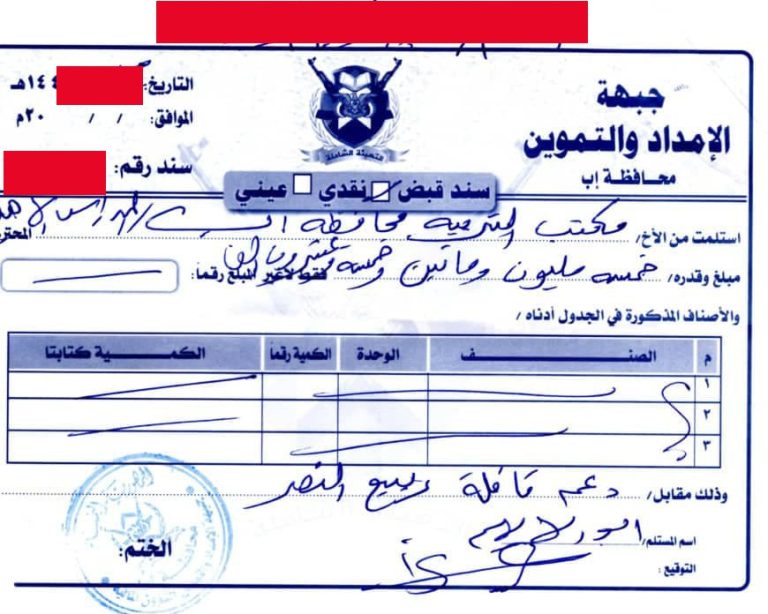 جبهة
الإمداد والتموين
محافظة إب
التعبئة الشاملة
التاريخ: ١٤٤ هـ
الموافق: / / ٢٠م
سند رقم:
سند قبض نقدي عيني
استلمت من الأخ/ مكتب التربية محافظة إب المحترم
مبلغ وقدره/ خمسة مليون ومأتين وخمسة وعشرون الف فقط لاغير المبلغ رقماً:
والأصناف المذكورة في الجدول أدناه /
م الصنف الوحدة الكمية رقماً الكمية كتابتا
١
٢
٣
وذلك مقابل/ دعم قافلة ربيع النصر
اسم المستلم/
التوقيع:
الختم: